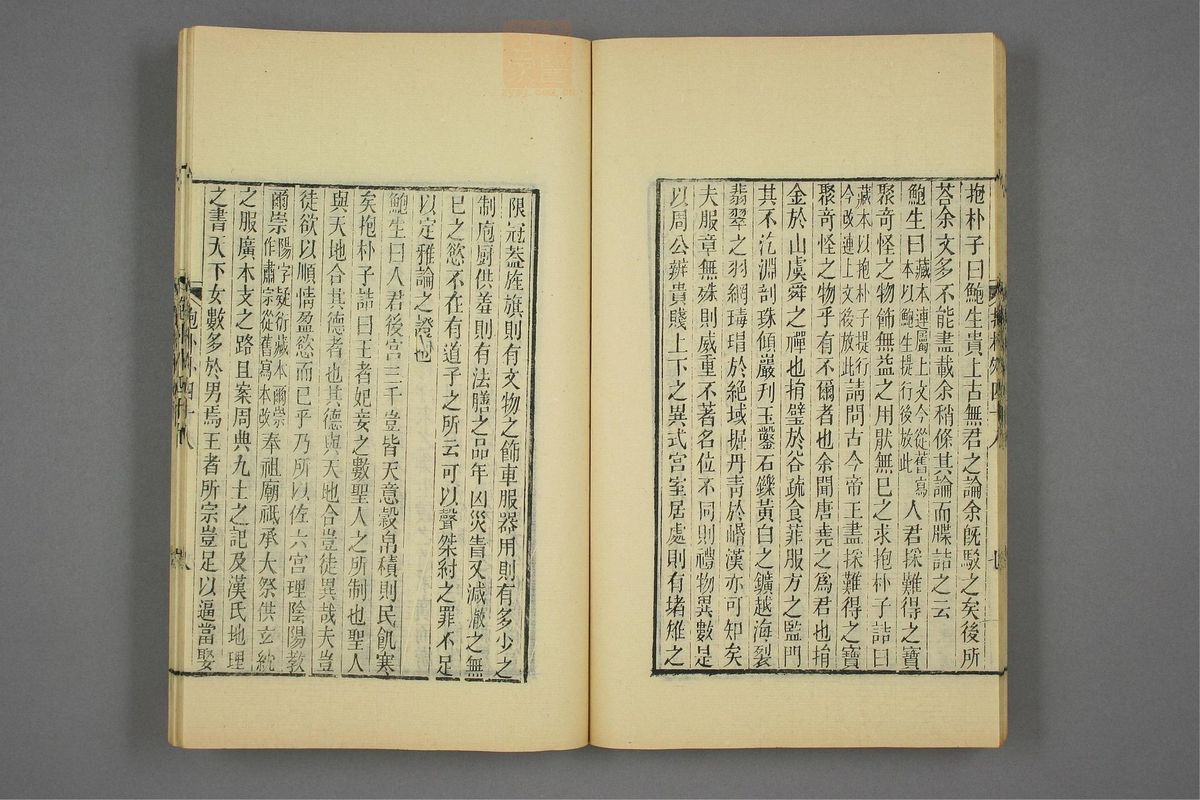 抱朴子曰鮑生貴上古無君之論余既駁之矣後所
荅余文多不能盡載余稍條其論而牒詰之云
鮑生曰藏本連屬上文今從舊寫本以鮑生提行後放此人君採難得之寶
聚奇怪之物飾無益之用猒無已之求抱朴子詰曰
藏本以抱朴子提行今改連上文後放此請問古今帝王盡採難得之寶
聚奇怪之物乎有不爾者也余聞唐堯之為君也捐
金於山虞舜之禪也捐璧於谷疏食菲服方之監門
其不汔淵剖珠傾巖刋玉鑿石鑠黃白之鑛越海裂
翡翠之羽網瑇瑁於絕域掘丹青於㟭漢亦可知矣
夫服章無殊則威重不著名位不同則禮物異數是
以周公辨貴賤上下之異式宮室居處則有堵雉之
限冠蓋旌旗則有文物之飾車服器用則有多少之
制庖厨供羞則有法膳之品年凶災眚又減撤之無
已之慾不在有道子之所云可以聲桀紂之罪不足
以定雅論之證也
鮑生曰人君後宮三千豈皆天意穀帛積則民飢寒
矣抱朴子詰曰王者妃妾之數聖人之所制也聖人
與天地合其德者也其德與天地合豈徒異哉夫豈
徒欲以順情盈慾而已乎乃所以佐六宮理陰陽教
爾崇陽字疑衍藏本爾崇作肅宗從舊寫本改奉祖廟祗承大祭供玄紞
之服廣本支之路且案周典九土之記及漢氏地理
之書天下女數多於男焉王者所宗豈足以逼當娶
抱朴外四十八